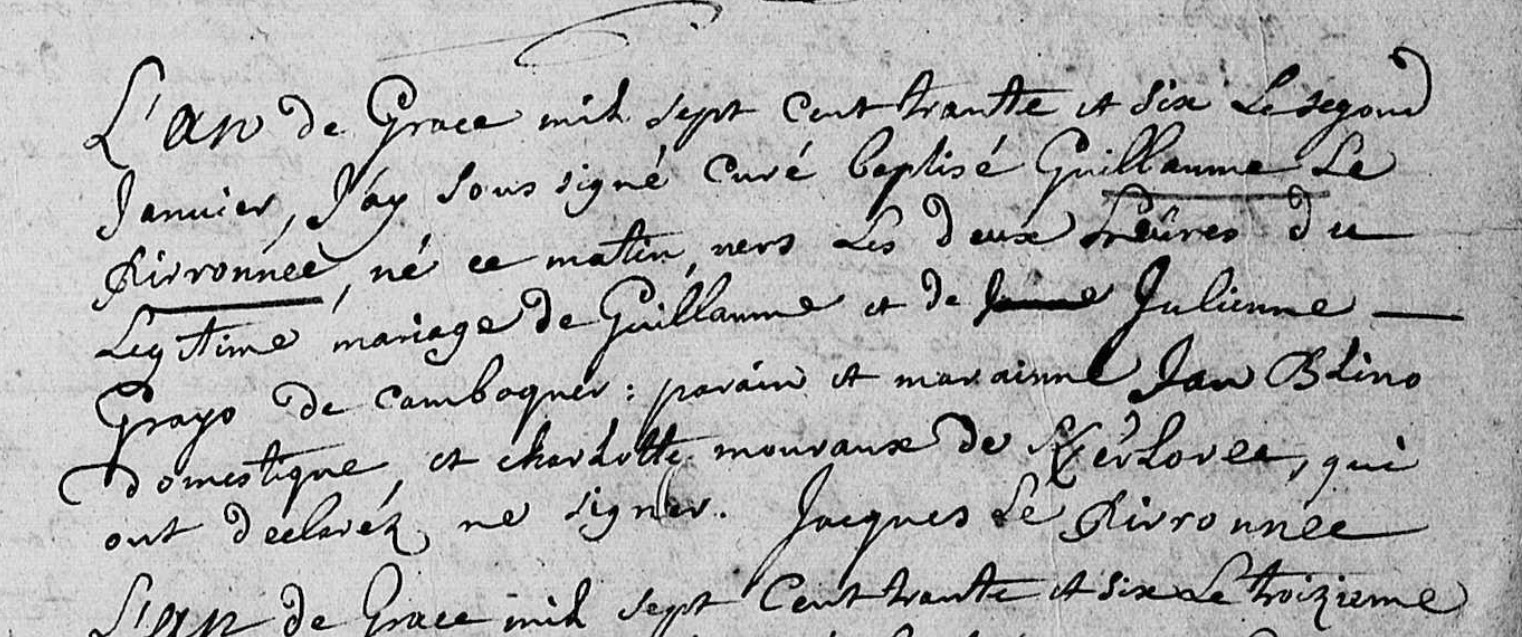 L'an de Grace mil sept Cent trantte et six Le segond
Janvier, J'ay sous signé curé baptisé Guillaume Le
Pirronnée, né ce matin, vers Les deux heûres du
Legitime mariage de Guillaume et de Julienne
Grayo de camboquer : parain et marainne Jan BLino
domestique, et charLotte mouraux de KerLoree, qui
ont declaréz ne signer. Jacques Le Pirronnée
L'an de Grace mil sept Cent trantte et six Le troizieme